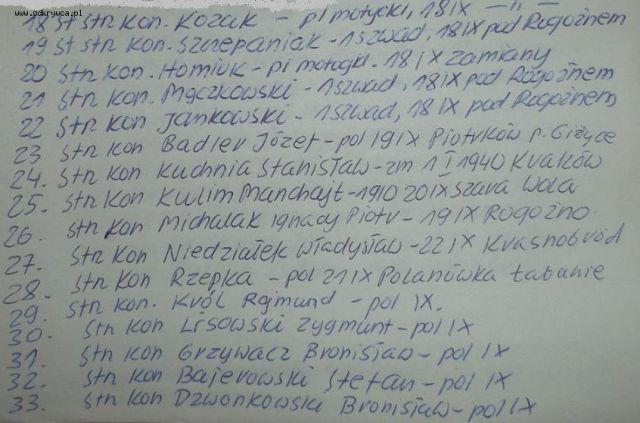 www.odkrywca.pl
18 st str. Kon. Kozak - pl motycki, 18 IX - " -
19 st str. Kon. Szczepaniak - 1 szwad, 18 IX pod Rogoźnem
20 str Kon. Homiuk - pl motocykl. 18 IX Zamiany
21 str Kon. Mączkowski - 1 szwad, 18 IX pod Rogoźnem
22 str Kon Jankowski - 1 szwad, 18 IX pod Rogoźnem
23 str Kon Badler Józef - pol 19 IX Piotrków p. Giżyce
24. str Kon Kuchnia Stanisław - zm 1 I 1940 Kraków
25. str Kon Kulim Manchajt - 1910 20 IX Szara Wola
26. str Kon Michalak Ignacy Piotr - 19 IX Rogoźno.
27. str Kon Niedziałek Władysław - 22 IX Krasnobród
28. str Kon Rzepka - pol 21 IX Polanówka Łabanie
29. str Kon. Król Rajmund - pol IX.
30. str Kon Lisowski Zygmunt - pol IX
31. str Kon Grzywacz Bronisław - pol IX
32. str Kon Bajerowski Stefan - pol IX
33. str Kon Dzwonkowski Bronisław - pol IX